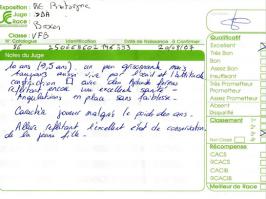 Exposition : RE Bretagne
Juge :
Race : Boxer
Classe : VFB
N° Catalogue Identification Date de Naissance à Confirmer
86
Notes du Juge
10 ans (9,5 ans). un peu grisonnante mais
toujours aussi vive par l'esprit et l'attitude
construction de des aplombs fermes
reflétant encore une excellente santé -
Angulations en place sans faiblesse -
Caractère joueur malgré le poids des ans.
Allure reflétant l'excellent état de conservation
de la jeune fille -
Qualificatif
Excellent
Très Bon
Bon
Assez Bon
Insuffisant
Très Prometteur
Prometteur
Assez Prometteur
Absent
Disqualifié
Non Classé
Classement
Récompense
CACS
RCACS
CACIB
RCACIB
Meilleur de Race